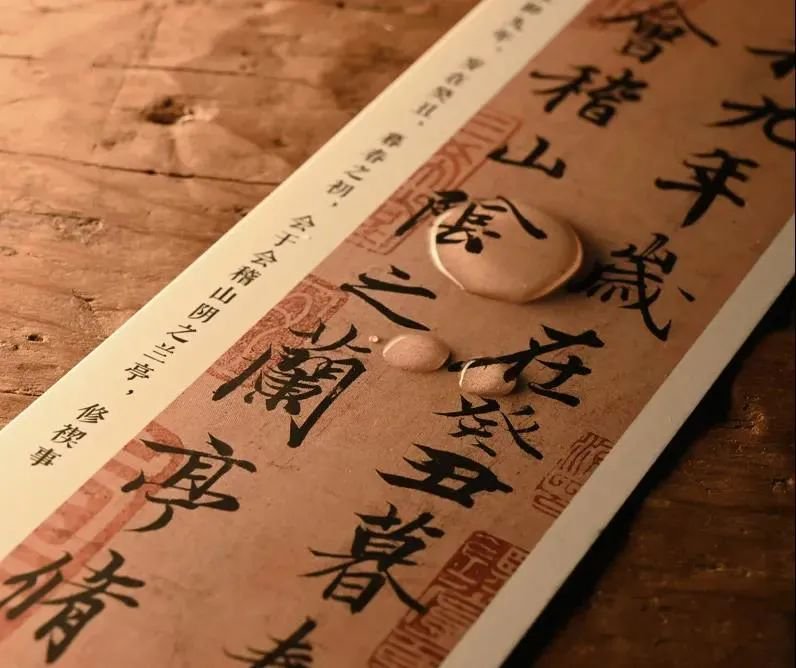 九年歲在癸丑暮春
會稽山陰之蘭亭脩
九年，岁在癸丑，暮春之初，会于会稽山阴之兰亭，修禊事